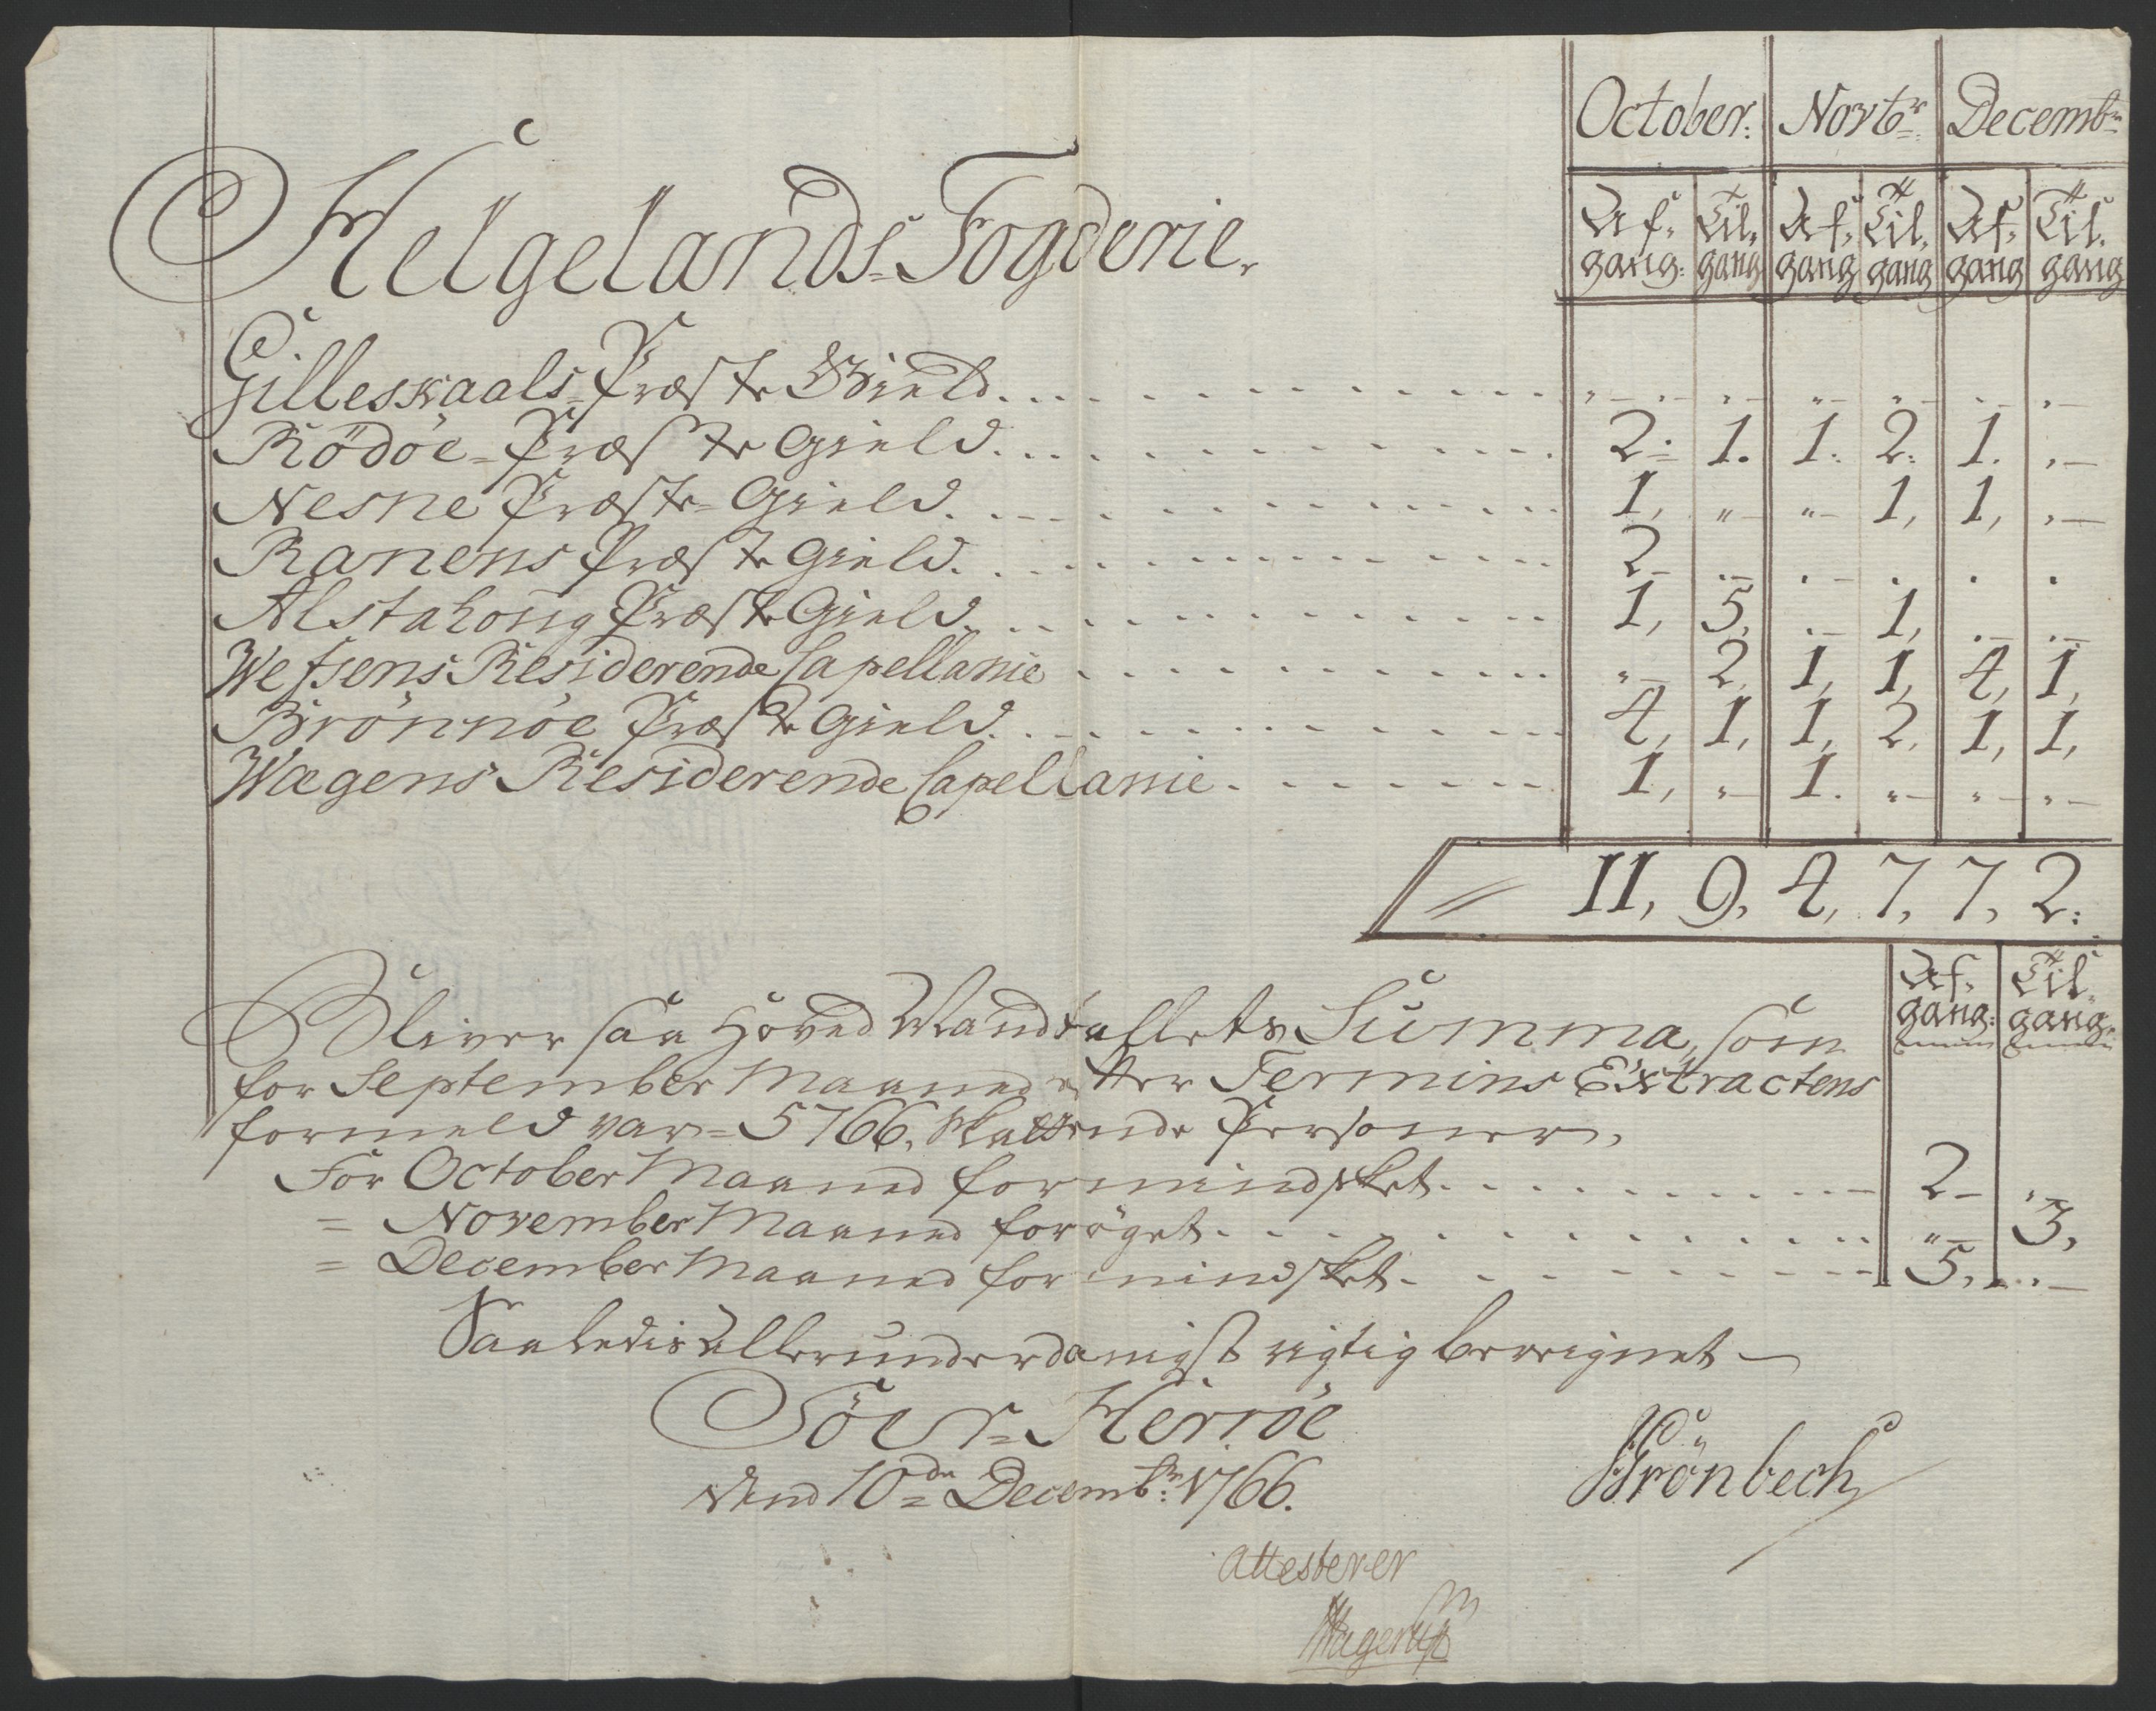 October: Novbr: Decembr
Af- Til- Af- Til- Af- Til-
gang: gang gang gang gang gang
Helgelands-Fogderie.
Gilleskaals-Præste Gield. „ „ „ „ „ „
Rödöe-Præste Gield. 2: 1. 1. 2. 1. „
Nesne Præste-Gield. 1, „ „ 1, 1, „
Ranens Præste Gield. 2 „ „ . . .
Alstahoug Præste Gield. 1, 5, „ 1, „ „
Wefsens Residerende Capellanie „ 2, 1, 1, 4, 1,
Brönnöe Præste Gield. 4, 1, 1, 2, 1, 1,
Wægens Residerende Capellanie. 1, „ 1. „ „ „
11, 9, 4, 7, 7, 2:
Af- Til-
gang: gang:
Bliver saa Hoved Mandtallets Summa, som
for September Maaned efter Termins Extractens
formeld var = 5766, skattende Personer,
For October Maaned formindsket. 2 „
= November Maaned forøget. „ 3,
= December Maaned formindsket. 5, „
Saaledis allerunderdanigst rigtig beregnet
Söer-Herröe
dend 10de Decembr: 1766.
Grönbech
attesterer
Hagerup